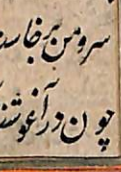 سرو من برخاست
چون در آغوشش